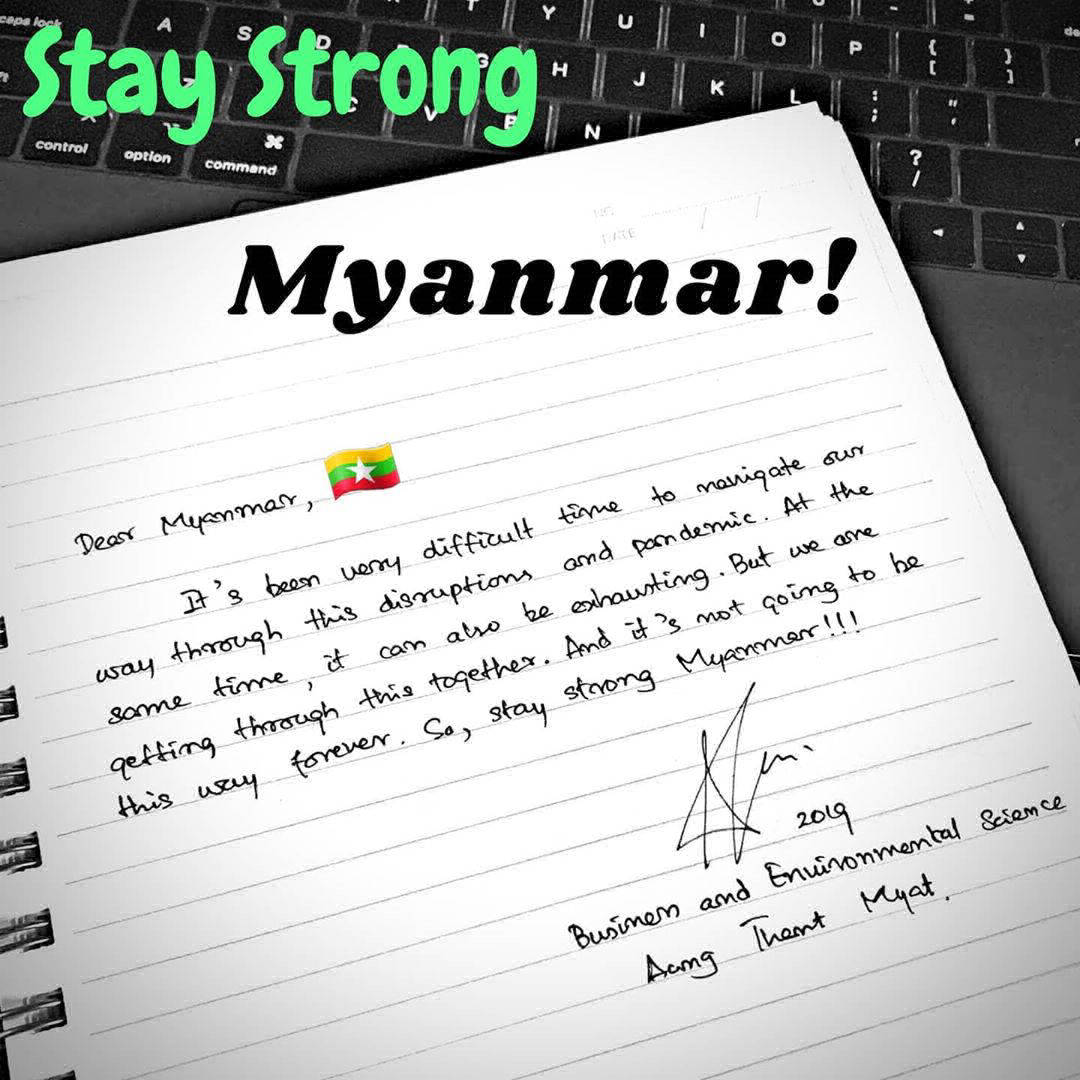 Stay Strong
caps lock
A
S
D
G
H
J
K
L
Y
U
I
O
P
{
[
}
]
:
;
"
'
V
B
N
?
/
control
option
command
⌘
NO.
DATE
Myanmar!
Dear Myanmar, 🇲🇲
It's been very difficult time to navigate our
way through this disruptions and pandemic. At the
same time, it can also be exhausting. But we are
getting through this together. And it's not going to be
this way forever. So, stay strong Myanmar!!!
2019
Business and Environmental Science
Aung Thant Myat.